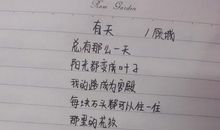 Rose Garden
有天 / 顾城
总有那么一天
阳光都变成叶子
我的路成为宫殿
每块石头都可以住一住
那里的花纹